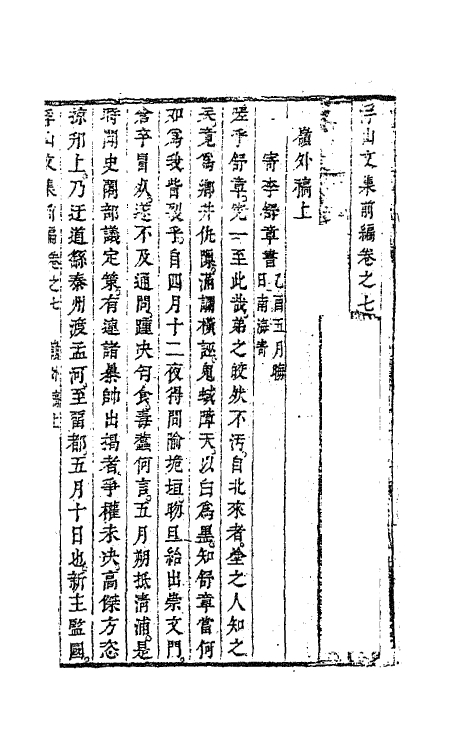 浮山文集前編卷之七
嶺外稿上
寄李舒章書 乙酉五月晦日南海寄
嗟乎舒章冤一至此哉弟之皎然不汚自北來者塗之人知之
天竟爲鄉井仇隙滿讕橫誣鬼蜮障天以白爲黑知舒章當何
如爲我眥裂乎自四月十二夜得間踰垝垣昒旦給出崇文門
倉卒冒 不及通問踵決匄食毒蠚何言五月朔抵淸浦是
時聞史閣部議定策有遠諸藩帥出揭者爭權未決高傑方恣
掠邗上乃迂道繇泰州渡孟河至留都五月十日也新主監國
浮山文集前編 卷之七 嶺外稿上